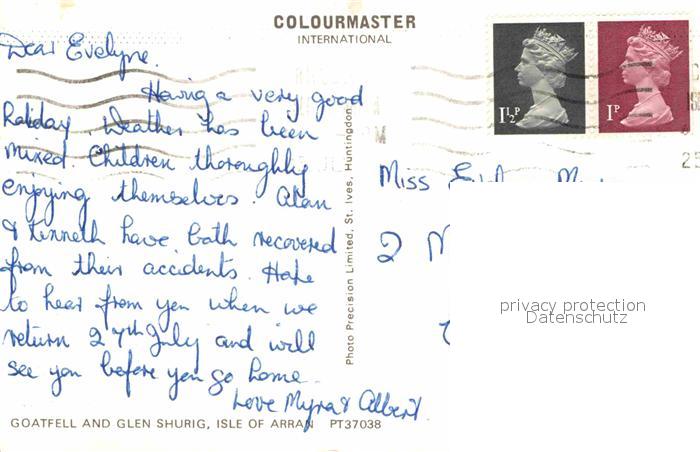 COLOURMASTER
INTERNATIONAL
Dear Evelyne.
Having a very good
Holiday. Weather has been
mixed. Children thoroughly
enjoying themselves. Alan
& Kenneth have both recovered
from their accidents. Hope
to hear from you when we
return 27th July and will
see you before you go home.
Love Myra & Albert.
GOATFELL AND GLEN SHURIG, ISLE OF ARRAN PT37038
Photo Precision Limited, St. Ives, Huntingdon
1½P
1P
25
Miss
2
privacy protection
Datenschutz